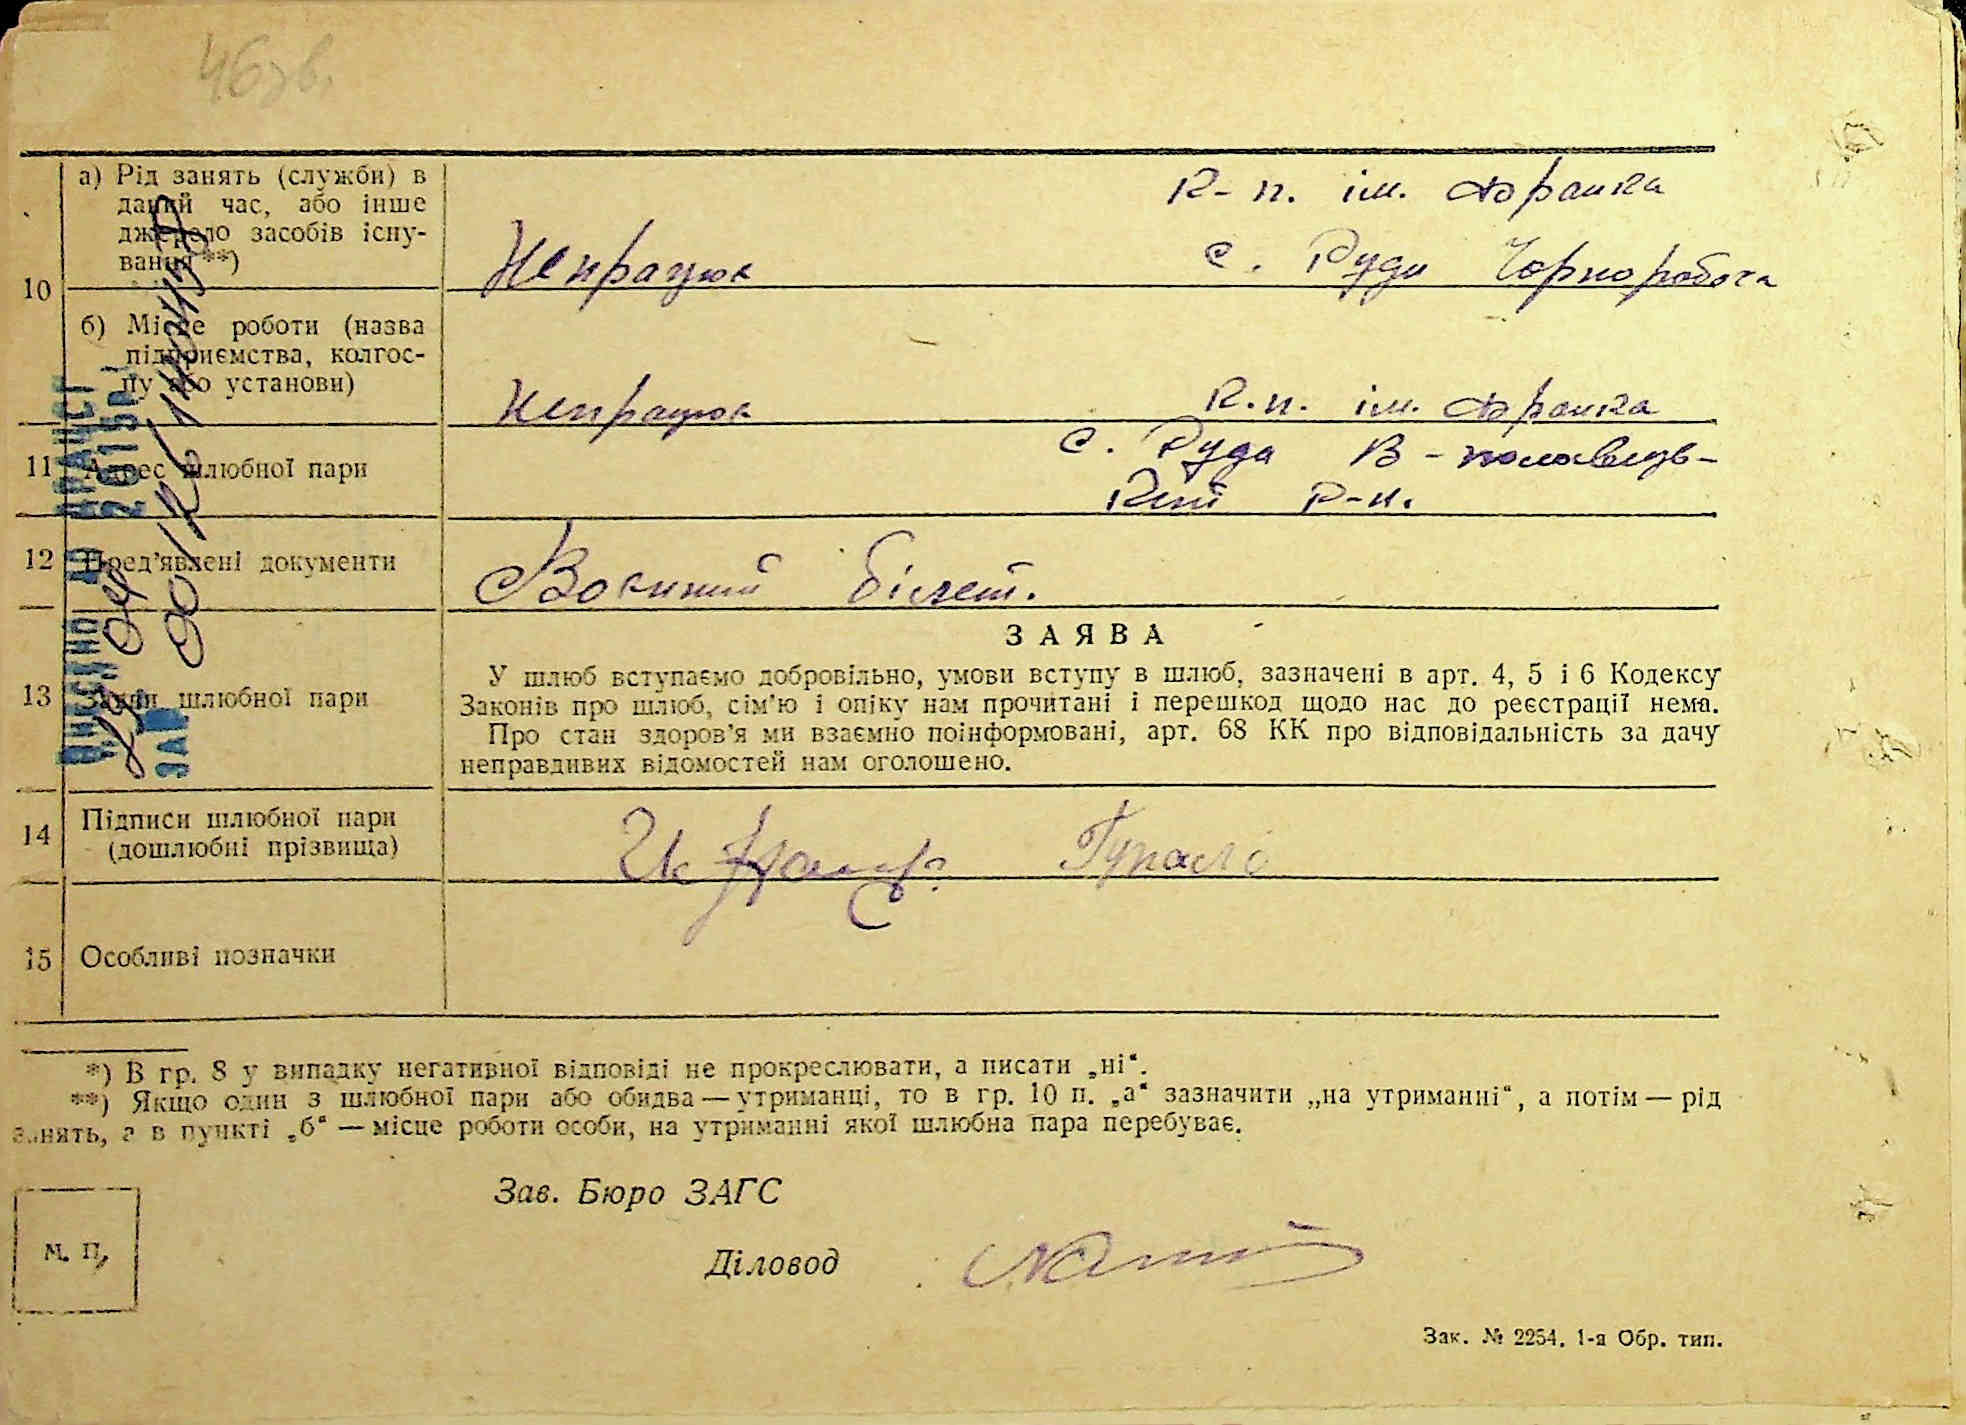 46 зв.
а) Рід занять (служби) в
даний час, або інше
джерело засобів існу-
вання **)
Непрацює
К-п. ім. Франка
с. Руди Чорноробоча
10
б) Місце роботи (назва
підприємства, колгос-
пу або установи)
Непрацює
К.п. ім. Франка
11 Адрес шлюбної пари
с. Руда В-половець-
кий р-н.
12 Пред'явлені документи
Воєнний білет.
13 Заяви шлюбної пари
ЗАЯВА
У шлюб вступаємо добровільно, умови вступу в шлюб, зазначені в арт. 4, 5 і 6 Кодексу
Законів про шлюб, сім'ю і опіку нам прочитані і перешкод щодо нас до реєстрації нема.
Про стан здоров'я ми взаємно поінформовані, арт. 68 КК про відповідальність за дачу
неправдивих відомостей нам оголошено.
14 Підписи шлюбної пари
(дошлюбні прізвища)
15 Особливі позначки
ДО ДРАЦСГ
2015р.
ЗА
*) В гр. 8 у випадку негативної відповіді не прокреслювати, а писати „ні“.
**) Якщо один з шлюбної пари або обидва — утриманці, то в гр. 10 п. „а“ зазначити „на утриманні“, а потім — рід
занять, а в пункті „б“ — місце роботи особи, на утриманні якої шлюбна пара перебуває.
Зав. Бюро ЗАГС
М. П.
Діловод
Зак. № 2254. 1-я Обр. тип.